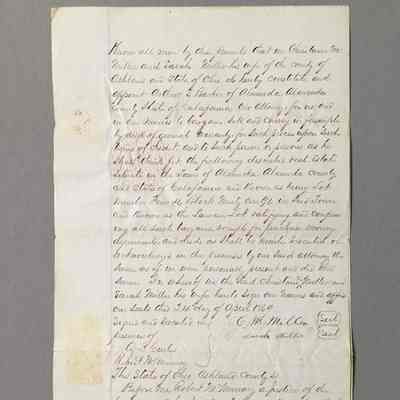 Know all men by these Presents that we Christian M.
Miller and Sarah Miller his wife of the county of
Ashland and State of Ohio do hereby constitute and
appoint A. Barber of Alameda Alameda
County State of California our Attorney for us and
in our names to bargain sell and convey in feesimple
by deed of general warranty for such price upon such
terms of credit and to such person or persons as he
shall think fit the following described real Estate
Situate in the Town of Alameda Alameda County
and State of California and known as being Lot
Number Block in Said Town
and known as the Lot ratifying and confirm
ing all such bargains for purchase money
agreements and deeds as shall be made executed or
acknowledged in the premises by our said attorney the
same as if we were personally present and did the
same. In whereof we the said Christian Miller and
Sarah Miller his wife have sign our names and affix
our Seals this 24 day of April 1860
Signed and executed in C. M. Miller Seal
presence of Sarah Miller Seal
Robert McMurray
The State of Ohio Ashland County ss
Before me Robert McMurray a justice of the